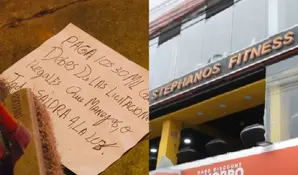 PAGA LOS 30 MIL QUE
DEBES DE LAS LICITACIONES
ILEGALES QUE MANEJAS O
TODO SALDRA A LA LUZ.
STEPHANOS FITNESS